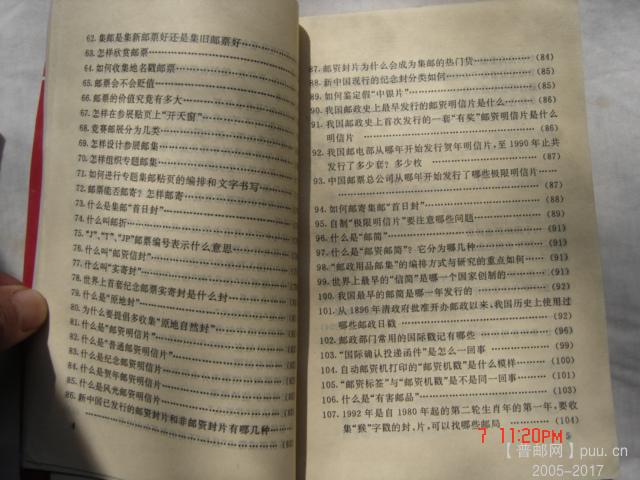 62. 集邮是集新邮票好还是集旧邮票好
63. 怎样欣赏邮票
64. 如何收集地名戳邮票
65. 邮票会不会贬值
66. 邮票的价值究竟有多大
67. 怎样在参展贴页上“开天窗”
68. 竞赛邮展分为几类
69. 怎样设计参展邮集
70. 怎样组织专题邮集
71. 如何进行专题集邮贴页的编排和文字书写
72. 邮票能否邮寄?怎样邮寄
73. 什么是集邮“首日封”
74. 什么叫邮折
75. “J”、“T”、“JP”邮票编号表示什么意思
76. 什么叫“邮资信封”
77. 什么叫“实寄封”
78. 世界上首套纪念邮票实寄封是什么封
79. 什么是“原地封”
80. 为什么要提倡多收集“原地自然封”
81. 什么是“邮资明信片”
82. 什么是“普通邮资明信片”
83. 什么是纪念邮资明信片
84. 什么是贺年邮资明信片
85. 什么是风光邮资明信片
86. 新中国已发行的邮资封片和非邮资封片有哪几种
4
87. 邮资封片为什么会成为集邮的热门货 (84)
88. 新中国现行的纪念封分类如何 (85)
89. 如何鉴定假“中银片” (85)
90. 我国邮政史上最早发行的邮资明信片是什么 (86)
91. 我国邮政史上首次发行的一套“有奖”邮资明信片是什么
明信片 (86)
92. 我国邮电部从哪年开始发行贺年明信片,至1990年止共
发行了多少套?多少枚 (87)
93. 中国邮票总公司从哪年开始发行了哪些极限明信片
(87)
94. 如何邮寄集邮“首日封” (89)
95. 自制“极限明信片”要注意哪些问题 (90)
96. 什么是“邮简” (91)
97. 什么是“邮资邮简”?它分为哪几种 (91)
98. “邮政用品邮集”的编排方式与研究的重点如何 (91)
99. 世界上最早的“信简”是哪一个国家创制的 (91)
100. 我国最早的邮简是哪一年发行的 (92)
101. 从1896年清政府批准开办邮政以来,我国历史上使用过
哪些邮政日戳 (92)
102. 邮政部门常用的国际戳记有哪些 (96)
103. “国际确认投递函件”是怎么一回事 (99)
104. 自动邮资机打印的“邮资戳”是什么模样 (100)
105. “邮资标签”与“邮资机戳”是不是同一回事 (101)
106. 什么是“有害邮品” (103)
107. 1992年是自1980年起的第二轮生肖年的第一年,要收
集“猴”字戳的封、片,可以找哪些邮局 (104)
5
7 11:20PM
【普邮网】puu.cn
2005-2017